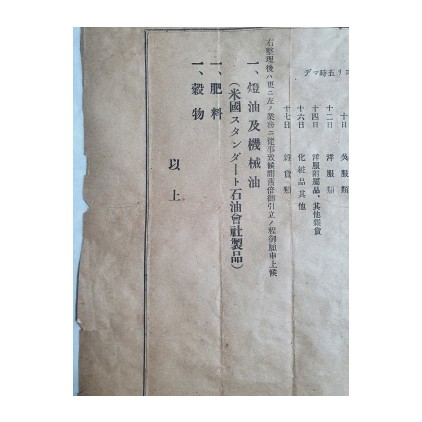 ヨリ五時マデ
十日 呉服類
十二日 洋服類
十四日 洋服附屬品 其他雜貨
十六日 化粧品其他
十七日 雜貨類
右整理後ハ更ニ左ノ業務ニ從事致候間舊倍御引立ノ程御願申上候
一、燈油及機械油
(米國スタンダート石油會社製品)
一、肥料
一、穀物
以上